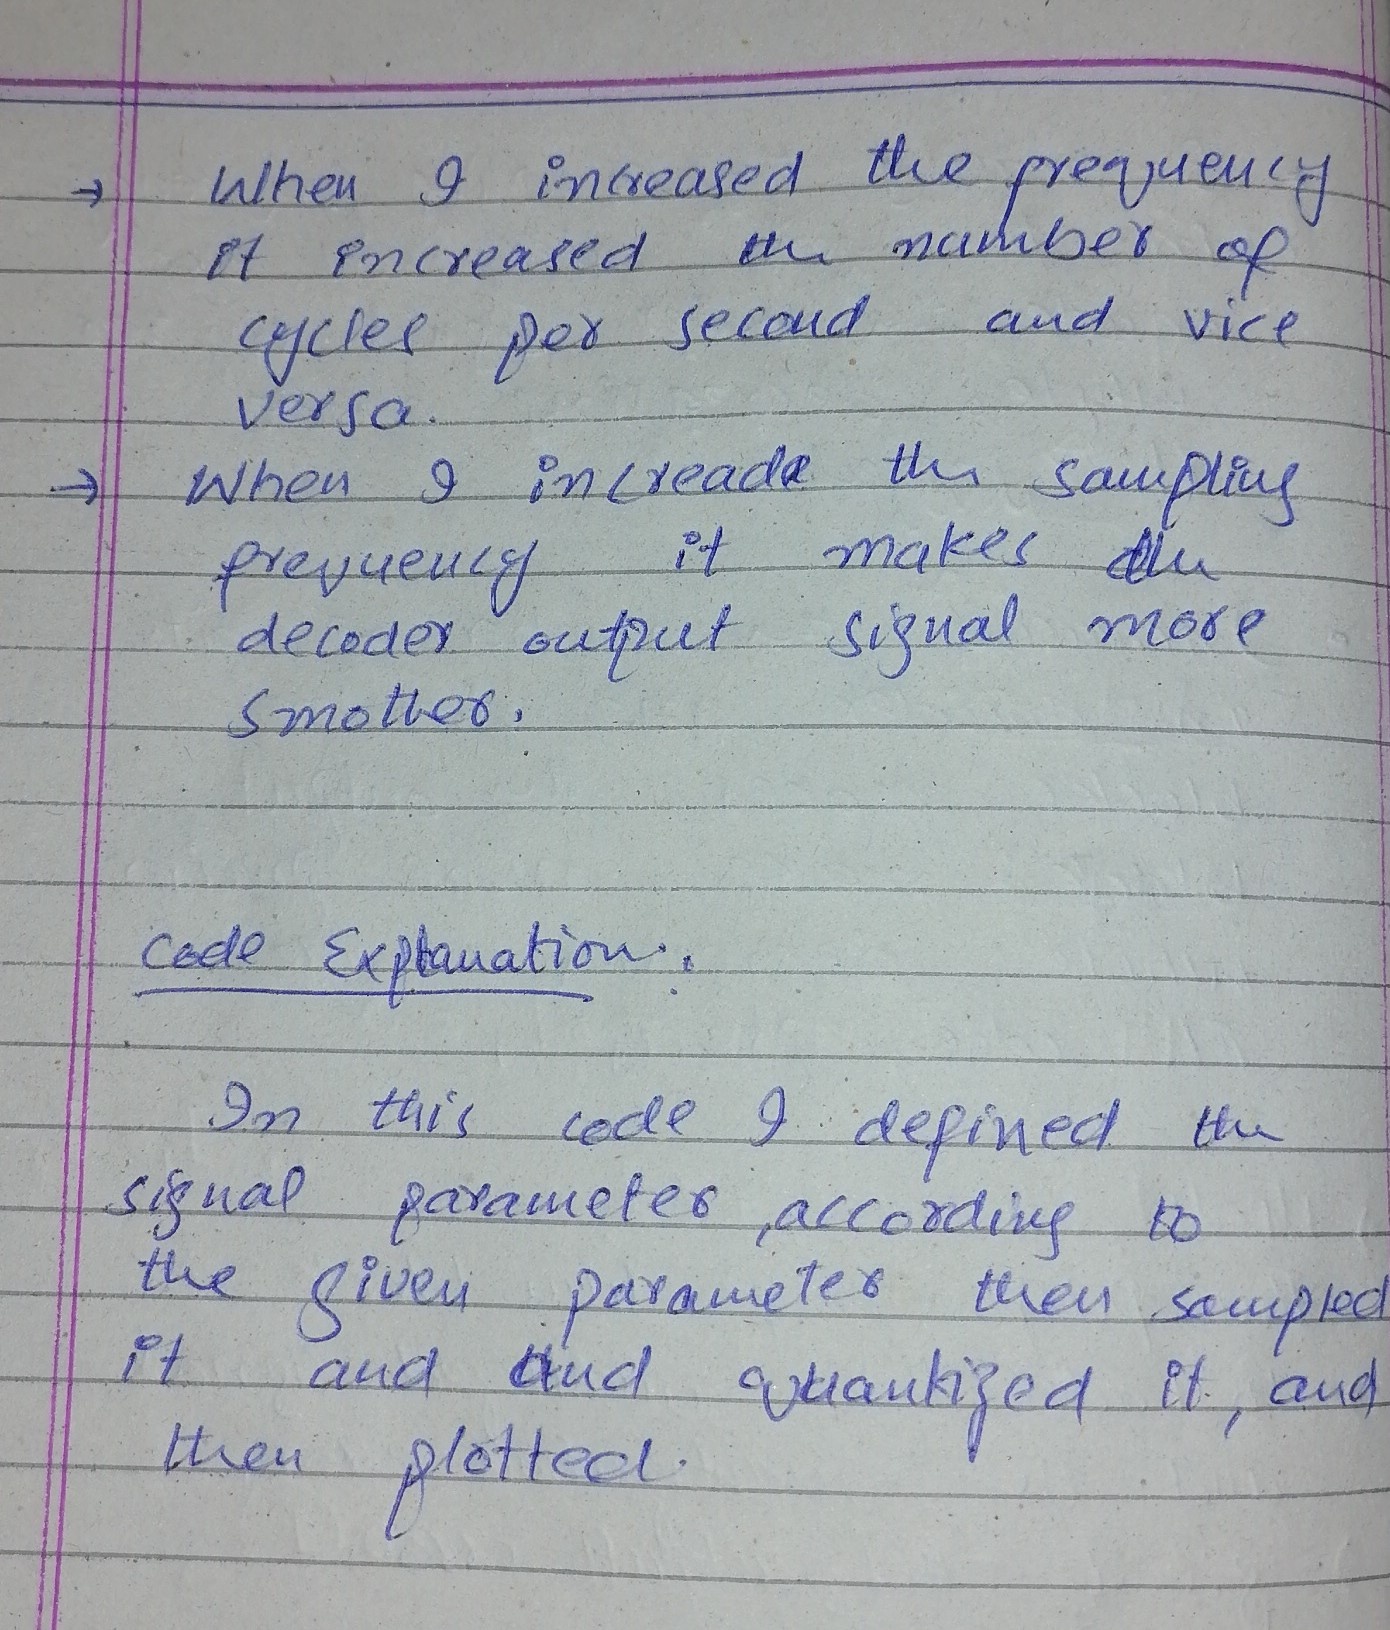 → When I increased the frequency
it increased the number of
cycles per second and vice
versa.
→ When I increade the sampling
frequency it makes the
decoder output signal more
smother.
Code Explanation:
In this code I defined the
signal parameter, according to
the given parameter then sampled
it and and quantized it, and
then plotted.